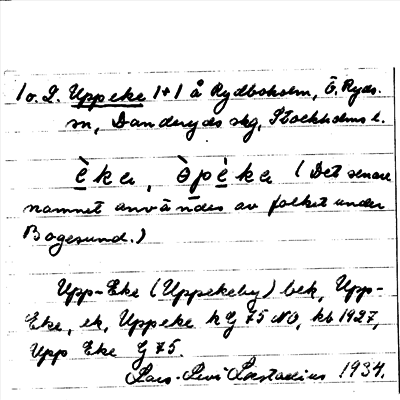 1 o. 2. Uppeke 1+1 å Rydboholm, Ö. Ryds
sn, Danderyds skg, Stockholms l.
è̱ka, ò̱pè̱ka (Det senare
namnet användes av folket under
Bogesund.)
Upp-Eke (Uppekeby) bek, Upp-
Eke, ek, Uppeke hg 75 NO, kb 1927,
Upp Eke G 75.
Lars-Levi Læstadius 1934.